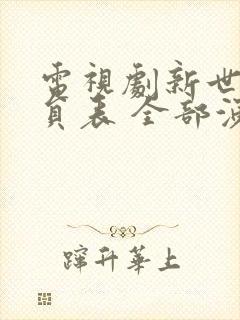 電視劇新世
員表 全部演
蹿升華上